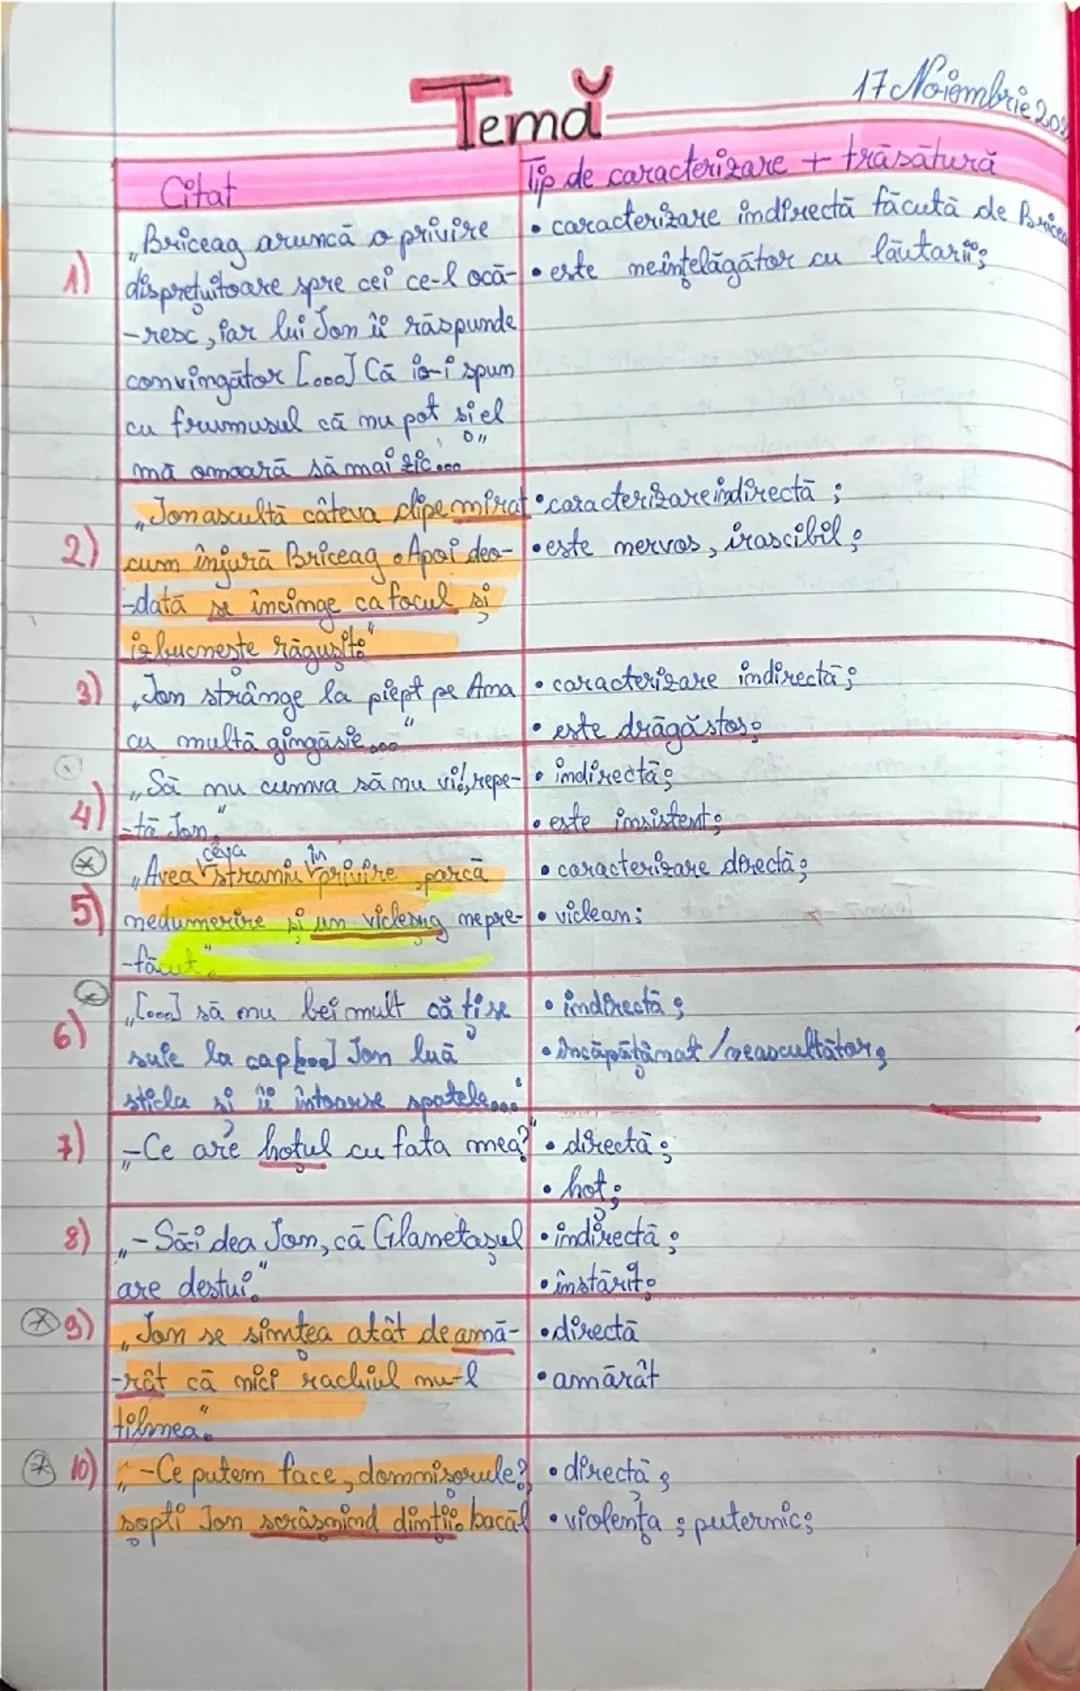 17 Noiembrie 20
Temă
Citat
Tip de caracterizare + trăsătură
1)
„Briceag aruncă o privire
disprețuitoare spre cei ce-l ocă-
-resc, iar lui Ion îi răspunde
convingător [...] Că io-i spun
cu frumusul că nu pot și el
mă omoară să mai zic..."
• caracterizare indirectă făcută de Bricea
• este neînțelăgător cu lăutarii;
2)
„Ion ascultă câteva clipe mirat
cum înjură Briceag. Apoi deo-
-dată se încinge ca focul și
izbucnește răgușit:"
• caracterizare indirectă ;
• este nervos, irascibil ;
3)
„Ion strânge la piept pe Ana
cu multă gingășie..."
• caracterizare indirectă ;
• este drăgăstos;
4)
„Să nu cumva să nu vii!, repe-
-tă Ion."
• indirectă;
• este insistent;
5)
„Avea ceva straniu în privire parcă
nedumerire și un vicleșug nepre-
-făcut"
• caracterizare directă;
• viclean;
6)
„[...] să nu bei mult că ți se
suie la cap [...] Ion luă
sticla și îi întoarse spatele..."
• indirectă ;
• încăpățânat /neascultător;
7)
„-Ce are hoțul cu fata mea?"
• directă ;
• hoț;
8)
„- Să-i dea Ion, că Glanetașul
are destui."
• indirectă ;
• înstărit;
9)
„Ion se simțea atât de amă-
-rât că nici rachiul nu-l
tihnea."
• directă
• amărât
10)
„-Ce putem face, domnișorule?
șopti Ion scrâșnind dinții.
• directă ;
• violența ; puternic;